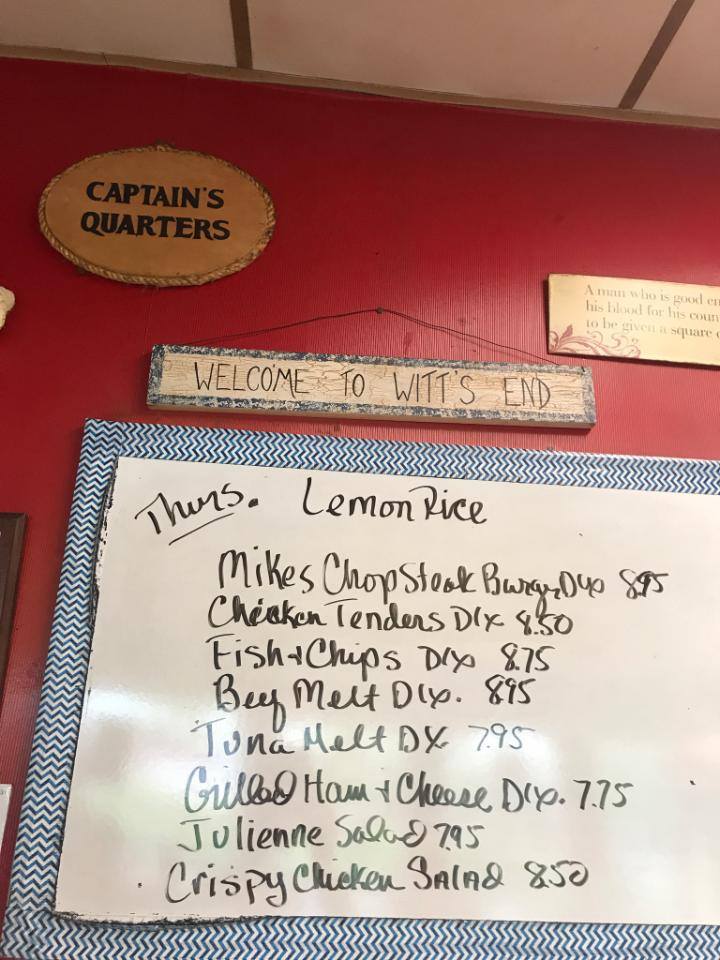 CAPTAIN'S
QUARTERS
A man who is good en
his blood for his coun
to be given a square
WELCOME TO WITT'S END
Thurs. Lemon Rice
Mikes Chop Steak Burger Dlx 8.95
Chicken Tenders Dlx 8.50
Fish + Chips Dlx 8.75
Beef Melt Dlx. 8.95
Tuna Melt DX 7.95
Grilled Ham + Cheese Dlx. 7.75
Julienne Salad 7.95
Crispy Chicken SALAD 8.50